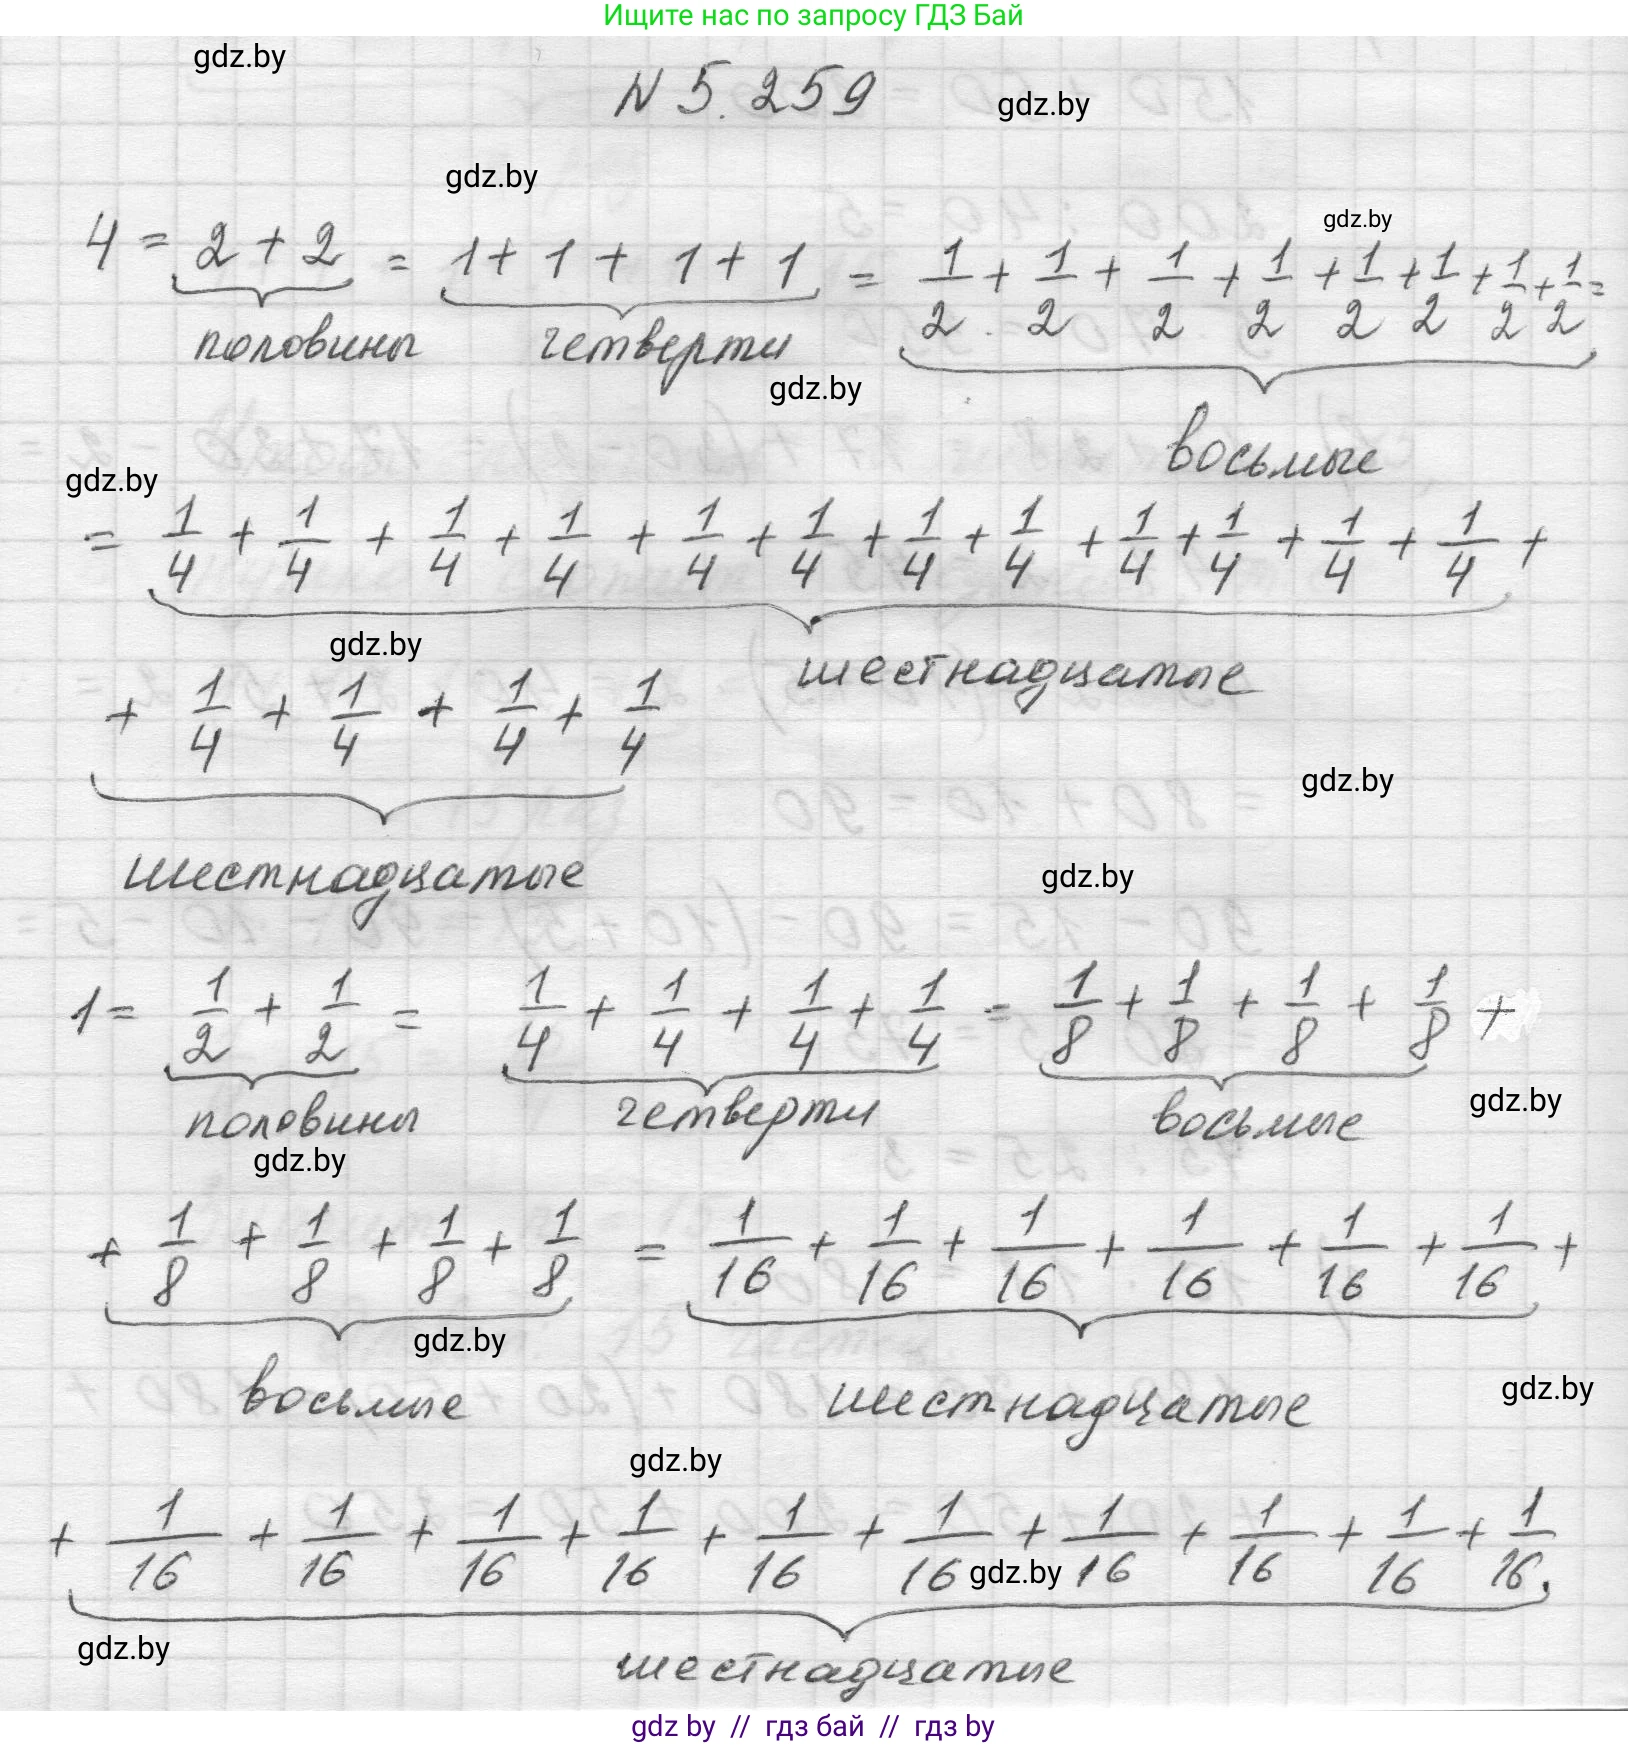 Ищите нас по запросу ГДЗ Бай
gdz.by
N 5. 259
gdz.by
gdz.by
gdz.by
4 = 2 + 2 = 1 + 1 + 1 + 1 = 1/2 + 1/2 + 1/2 + 1/2 + 1/2 + 1/2 + 1/2 + 1/2 =
половины четверти
gdz.by
восьмые
gdz.by
= 1/4 + 1/4 + 1/4 + 1/4 + 1/4 + 1/4 + 1/4 + 1/4 + 1/4 + 1/4 + 1/4 + 1/4 +
gdz.by
шестнадцатые
+ 1/4 + 1/4 + 1/4 + 1/4
gdz.by
шестнадцатые
gdz.by
1 = 1/2 + 1/2 = 1/4 + 1/4 + 1/4 + 1/4 = 1/8 + 1/8 + 1/8 + 1/8 +
половины четверти восьмые
gdz.by
gdz.by
+ 1/8 + 1/8 + 1/8 + 1/8 = 1/16 + 1/16 + 1/16 + 1/16 + 1/16 + 1/16 +
gdz.by
восьмые шестнадцатые
gdz.by
gdz.by
+ 1/16 + 1/16 + 1/16 + 1/16 + 1/16 + 1/16 + 1/16 + 1/16 + 1/16 + 1/16.
gdz.by
gdz.by
шестнадцатые
gdz by // гдз бай // гдз by